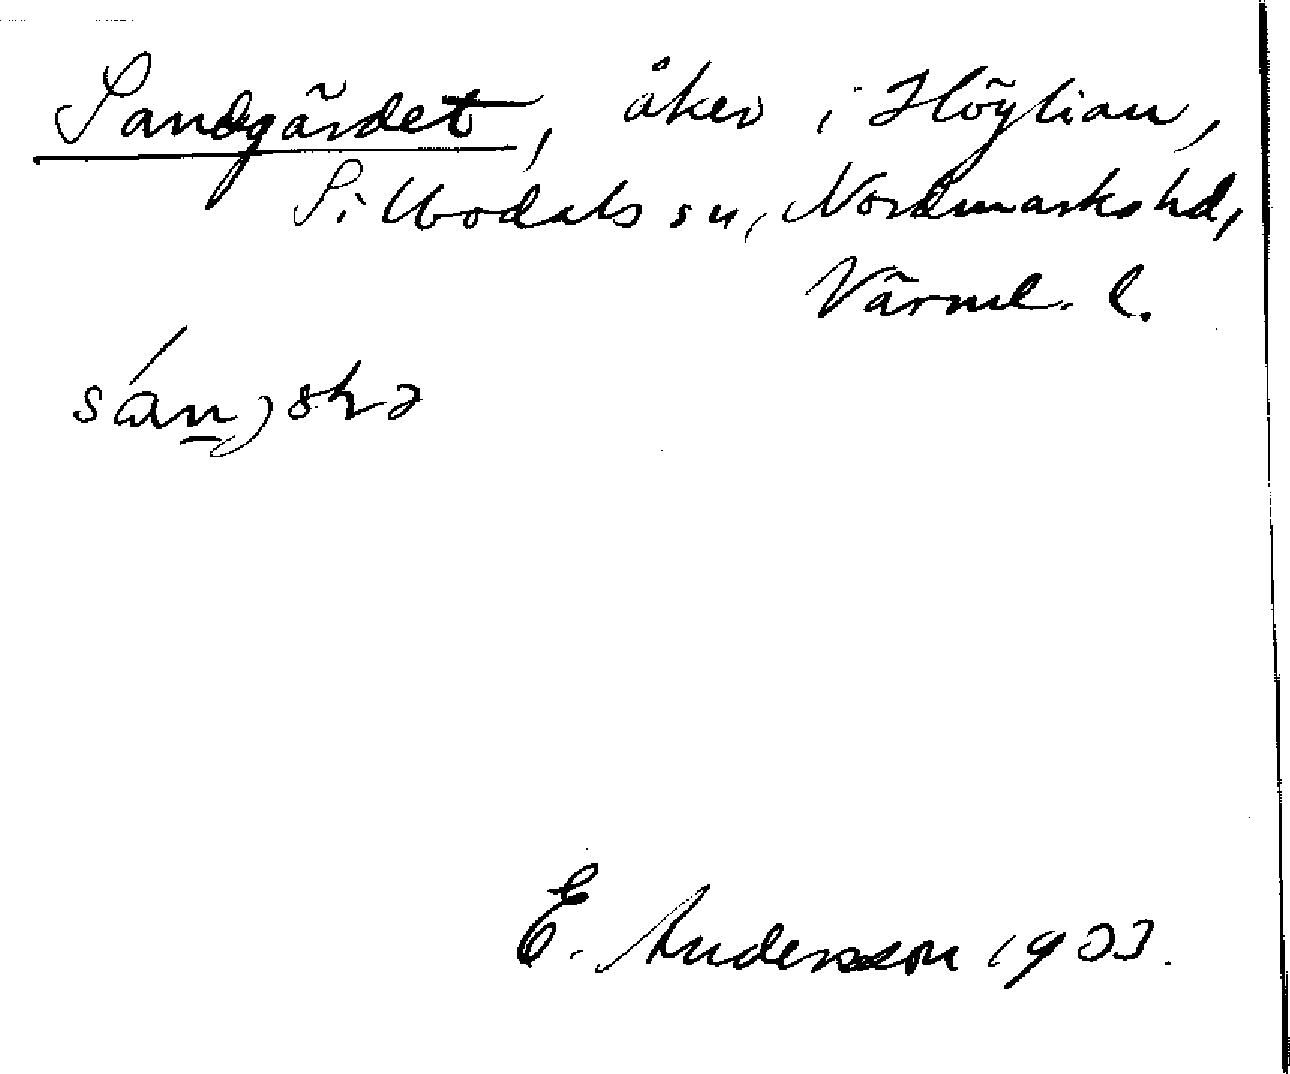 Sandgärdet, åker i Höglian,
Sillbodals sn, Nordmarks hd,
Värml. l.
E. Andersson 1933.